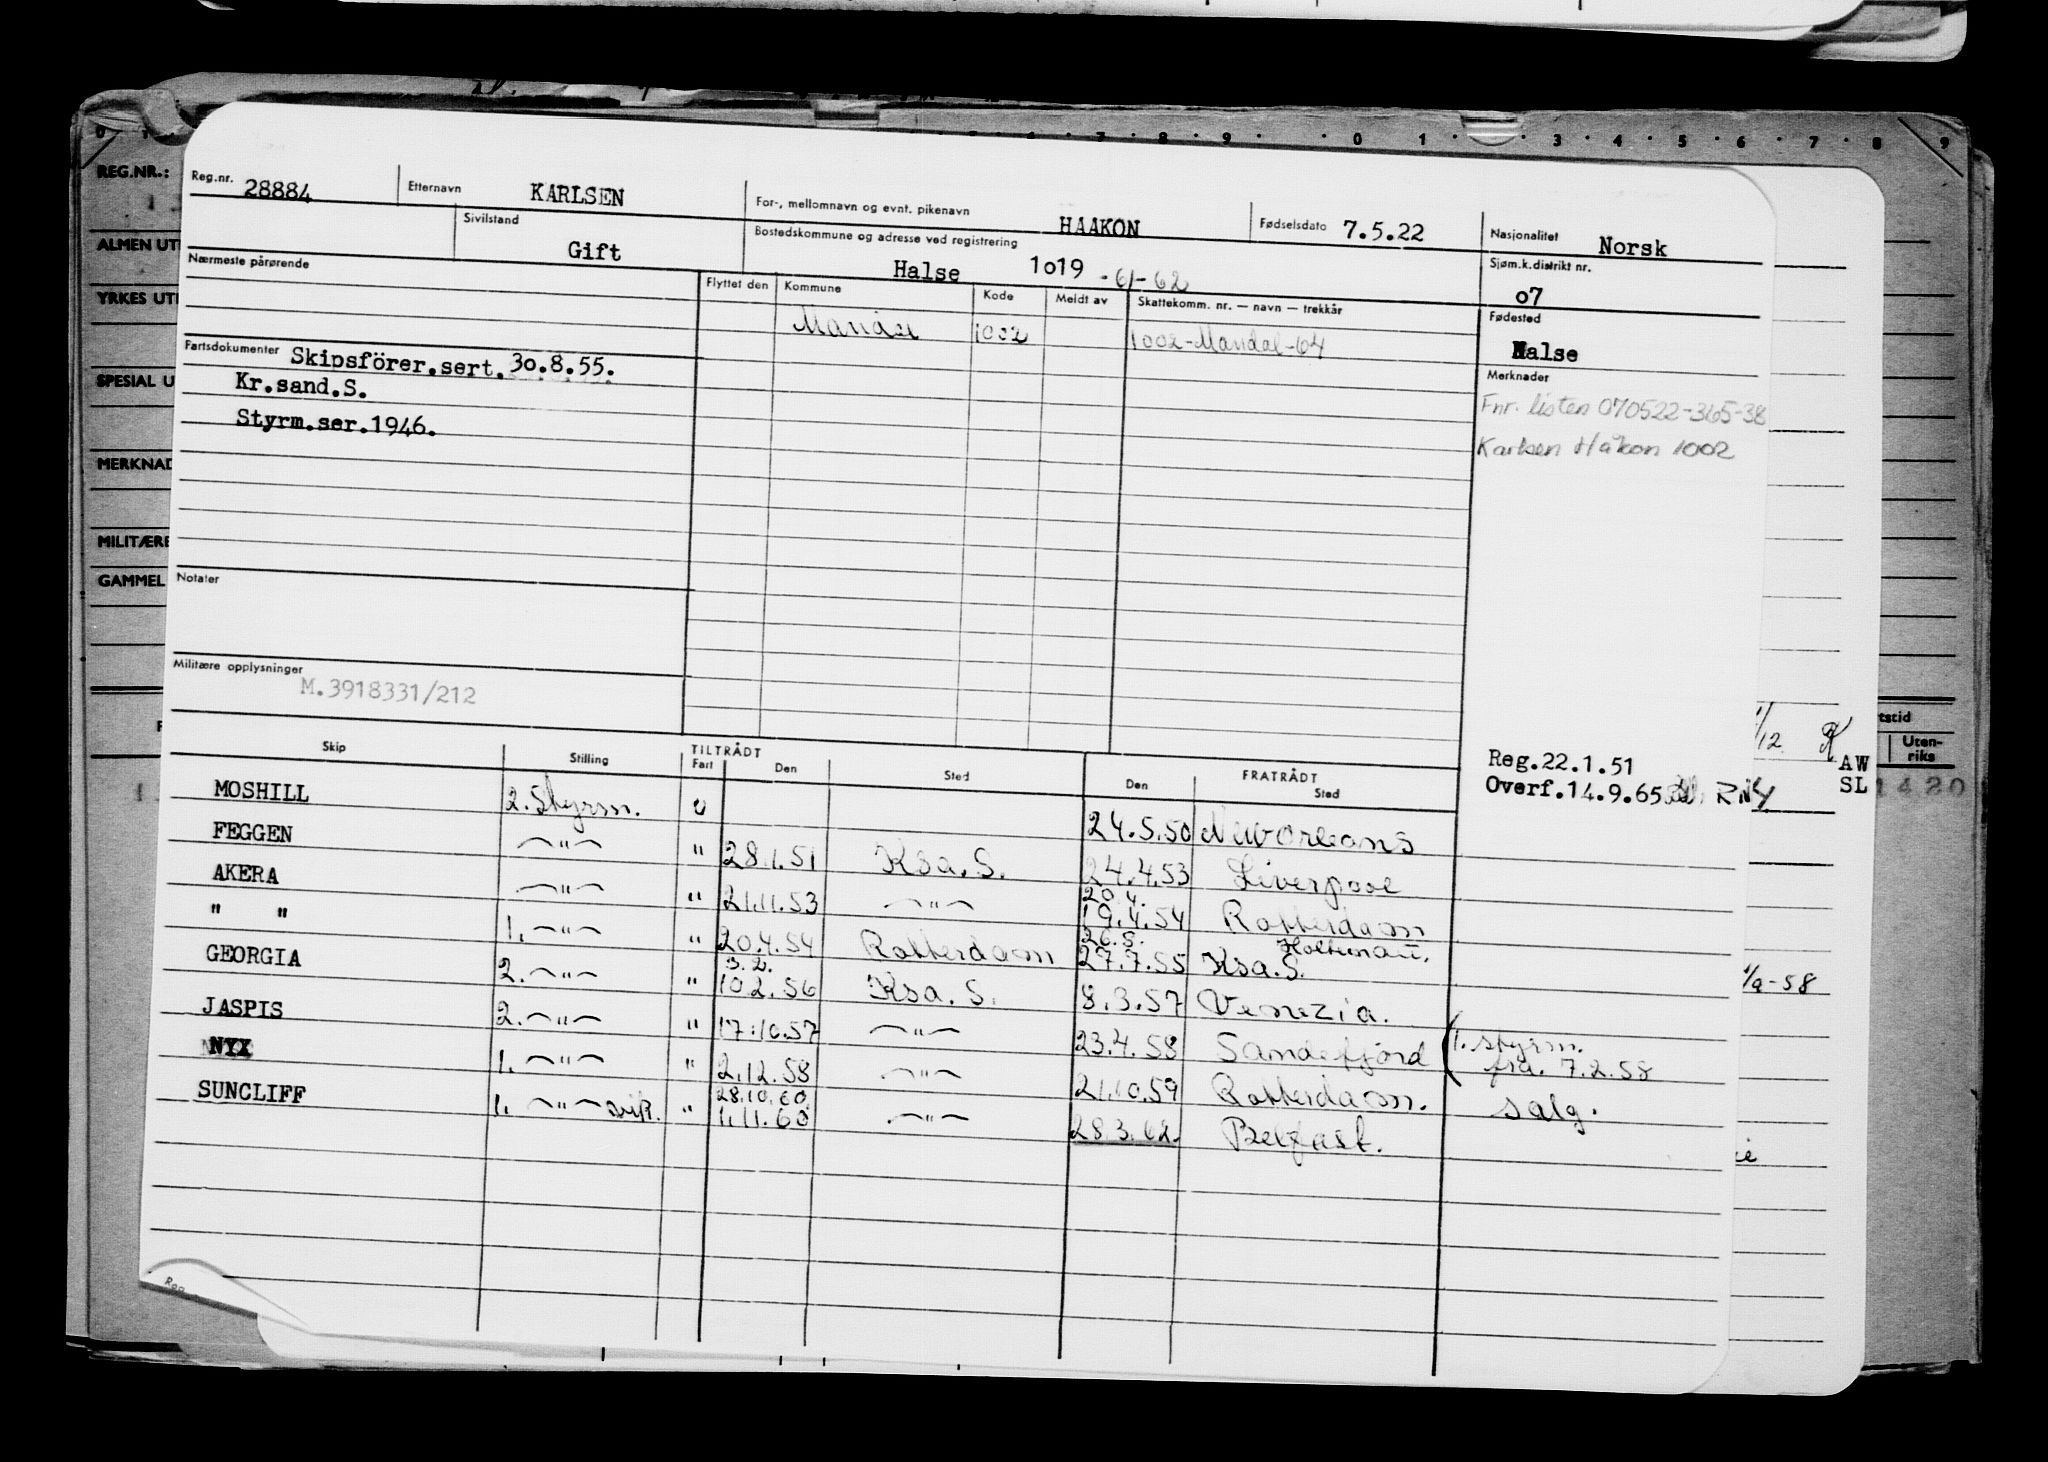 0 6 7 8 9 0 1 3 4 5 6 7 8 9
REG.NR.:
ALMEN UT
YRKES UT
SPESIAL U
MERKNAD
MILITÆRE
GAMMEL
Reg.nr. 28884 Etternavn KARLSEN For-, mellomnavn og evnt. pikenavn HAAKON Fødselsdato 7.5.22 Nasjonalitet Norsk
Sivilstand Gift Bostedskommune og adresse ved registrering Halse 1o19 -61-62 Sjøm.k.distrikt nr. o7
Nærmeste pårørende Flyttet den Kommune Kode Meldt av Skattekomm. nr. — navn — trekkår Fødested Halse
Mandal 1002 1002-Mandal-64
Fartsdokumenter Skipsförer.sert.3o.8.55.
Kr.sand.S.
Styrm.ser.1946.
Merknader
Fnr. listen 070522-365-38
Karlsen Håkon 1002
Notater
Militære opplysninger
M.3918331/212
Reg.22.1.51 AW
Overf.14.9.65 SL
Skip Stilling TILTRÅDT Fart Den Sted FRATRÅDT Den Sted
MOSHILL 2. Styrm. U 24.5.50 New Orleans
FEGGEN —"— " 28.1.51 Ksa. S. 24.4.53 Liverpool
AKERA —"— " 21.11.53 —"— 20.4. 19.4.54 Rotterdam
" " 1. —"— " 20.4.54 Rotterdam 26.5. 27.7.55 Holtenau. Ksa. S.
GEORGIA 2. —"— " 3.2. 10.2.56 Ksa. S. 8.3.57 Venezia.
JASPIS 2. —"— " 17.10.57 —"— 23.4.58 Sandefjord (1. styrm. fra. 7.2.58
NYX 1. —"— " 2.12.58 —"— 21.10.59 Rotterdam. salg.
SUNCLIFF 1. —"— " 28.10.60. 1.11.60 —"— 28.3.62. Belfast.
1/12
rtstid
Uten-
riks
1420
1/9-58
ie
Reg